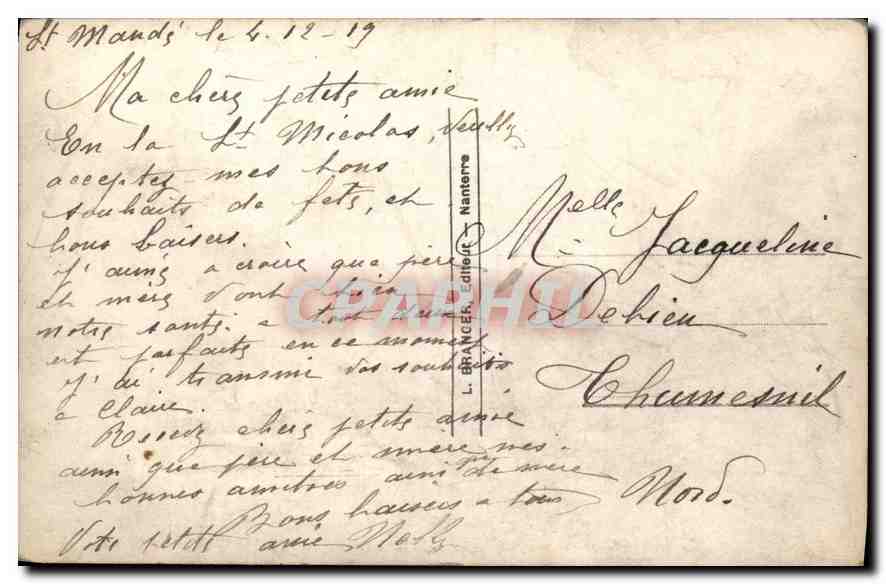 St Mandé le 4-12-19
Ma chère petite amie
En la St Nicolas, veuillez
acceptez mes bons
souhaits de fête, et
bons baisers.
J'aime a croire que père
et mère vont bien
notre santé a tout deux
est parfaite en ce moment
J'ai transmi vos souhaits
a Claire.
Recevez chère petite amie
ainsi que père et mère mes
bonnes amitiés ainsi de mère
Bons baisers a tous
Votre petite amie Nelly
L. BRANGER, Editeur — Nanterre
Melle Jacqueline
Dehieu
Thumesnil
Nord.
CPAPHIL